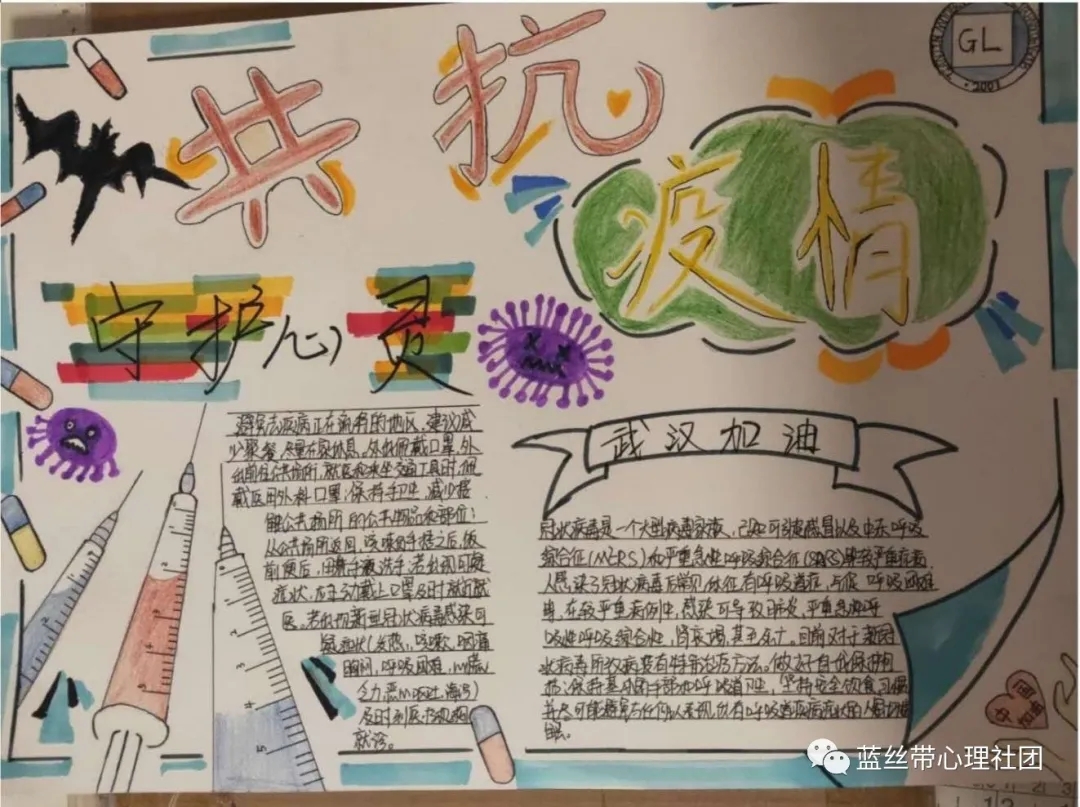 共抗
疫情
GL
2001
守护心灵
避免去疾病正在流行的地区,建议减
少聚餐,尽量在家休息,外出佩戴口罩,外
出前往公共场所,就医和乘坐交通工具时,佩
戴医用外科口罩;保持手卫生,减少接
触公共场所的公共物品和部位;
从公共场所返回,咳嗽手捂之后,饭
前便后,用洗手液洗手;若出现可疑
症状,应主动戴上口罩及时就近就
医。若出现新型冠状病毒感染可
疑症状(发热,咳嗽,咽痛
胸闷,呼吸困难,
乏力,恶心呕吐,
及时到医疗机构
就诊。
武汉加油
冠状病毒是一个大型病毒家族,已知可引起感冒以及中东呼吸
综合征(MERS)和严重急性呼吸综合征(SARS)等较严重疾病,
人感染了冠状病毒后常见体征有呼吸道症
在较严重病例中,感染可导致肺炎,严重急性呼
吸性呼吸综合征,肾衰竭,甚至死亡。目前对于新冠
状病毒所致疾病没有特异治疗方法。做好自我保护包
括:保持基本的手部和呼吸道卫生,坚持安全饮食习惯
并尽可能避免与任何以表现出有呼吸道疾病症状的人密切接
触。
中国
加油
蓝丝带心理社团